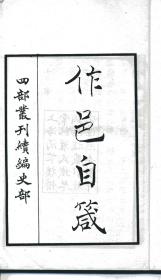 作邑自箴
四部叢刊續編史部